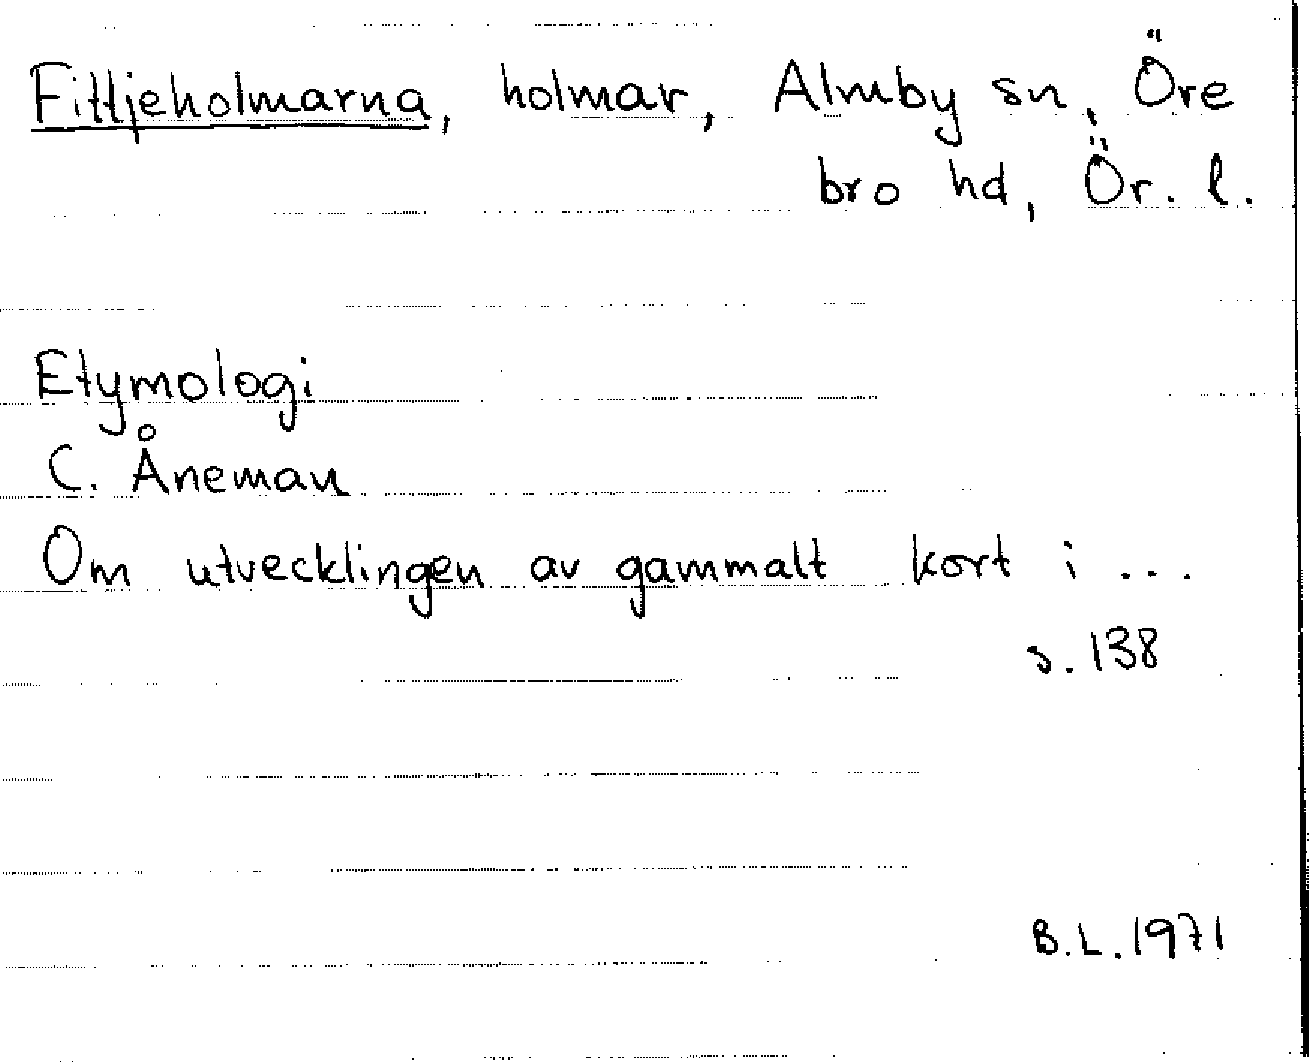 Fittjeholmarna, holmar, Almby sn, Öre
bro hd, Ör. l.
Etymologi
C. Åneman
Om utvecklingen av gammalt kort i ...
s. 138
B.L. 1971